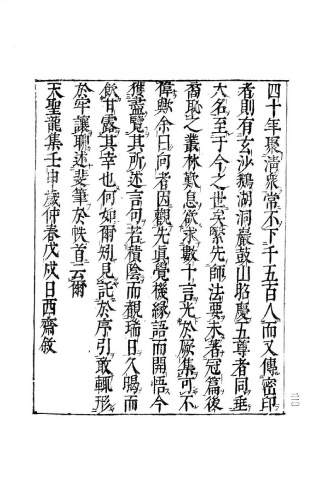 四十年聚清衆常不下千五百人而又傳密印
者則有玄沙鵝湖洞巖鼓山招慶五尊者同垂
大名至于今之世矣繄先師法要未著冠篇後
裔恥之叢林歎息欲求數十言光於厥集可不
偉歟余曰向者因觀先眞覺機緣語而開悟今
獲盡覽其所述言句若積陰而觀瑞日久暍而
飲甘露其幸也何如爾矧見託於序引敢輙形
於牢讓聊述斐筆於帙首云爾
天聖龍集壬申歲仲春戊戌日西齋敘